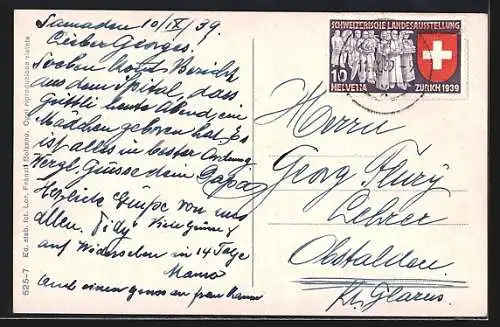 Samaden 10/IX/39.
Lieber Georges.
Soeben Bericht
aus dem Spital, dass
heute Abend ein
Mädchen geboren hat. Es
ist alles in bester Ordnung
Herzl. Grüsse dein Papa
Herzliche Grüsse von uns
allen. Viele Grüsse &
auf Wiedersehen in 14 Tage
Mama
Auch einen an Frau
SCHWEIZERISCHE LANDESAUSSTELLUNG
10
HELVETIA ZÜRICH 1939
Herrn
Georg Flury
Lehrer
Obstalden
Kt. Glarus.
525-7 Ed. stab. fot. Lor. Fränzl Bolzano. Ogni riproduzione vietata